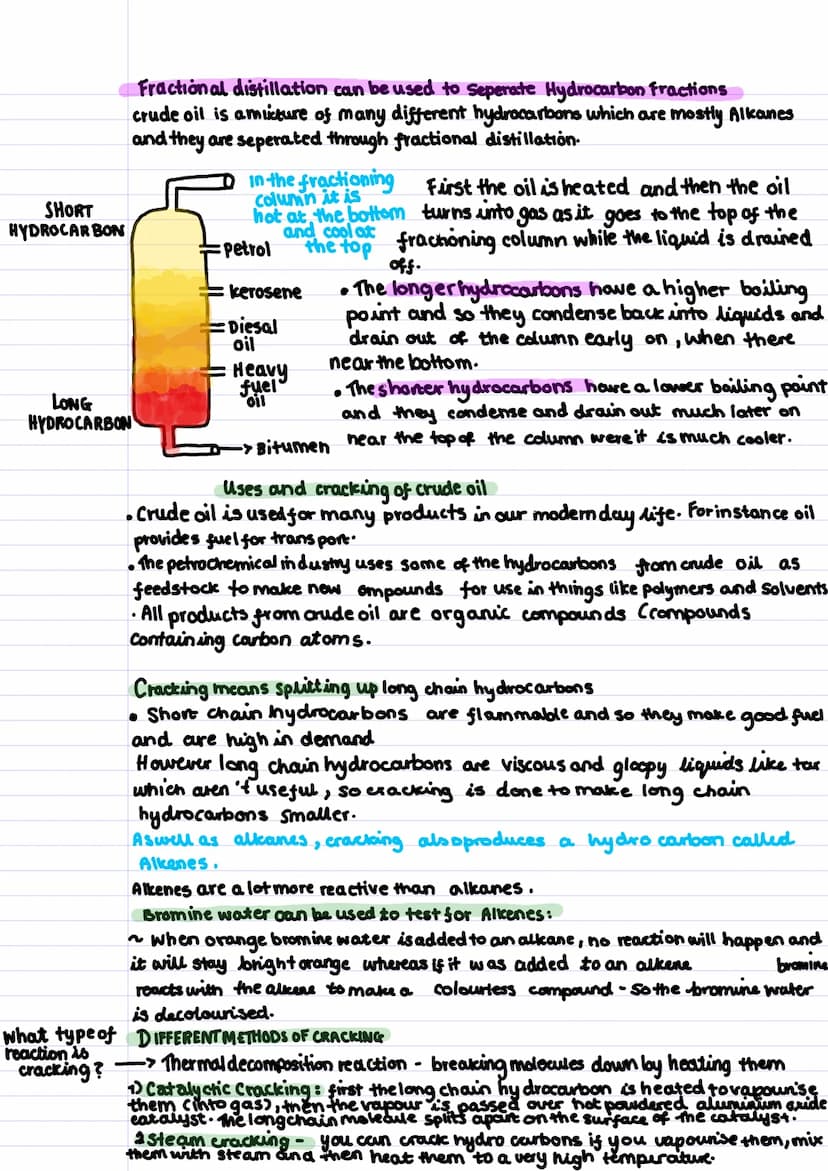 Fractional distillation can be used to Seperate Hydrocarbon fractions
crude oil is a mixture of many different hydrocarbons which are mostly Alkanes
and they are seperated through fractional distillation.
SHORT
HYDROCARBON
Petrol
kerosene
Diesal
oil
Heavy
fuel
oil
LONG
HYDROCARBON
Bitumen
In the fractioning
column it is
hot at the bottom
and cool at
the top
First the oil is heated and then the oil
turns into gas as it goes to the top of the
frachoning column while the liquid is drained
off.
• The longer hydrocarbons have a higher boiling
point and so they condense back into liquids and
drain out of the column early on, when there
near the bottom.
• The shorter hydrocarbons have a lower boiling point
and they condense and drain out much later on
near the top of the column were it is much cooler.
Uses and cracking of crude oil
• Crude oil is used for many products in our modern day life. For instance oil
provides fuel for transport.
• The petrochemical industry uses some of the hydrocarbons from crude oil as
feedstock to make new ompounds for use in things like polymers and Solvents
· All products from crude oil are organic compounds (compounds
containing carbon atoms.
Cracking means splitting up long chain hydrocarbons
• Short chain hydrocarbons are flammable and so they make good fuel
and are high in demand
However long chain hydrocarbons are viscous and gloopy liquids like tar
which aren't useful, so cracking is done to make long chain
hydrocarbons smaller.
Aswell as alkanes, cracking also produces a hydro carbon called
Alkenes.
Alkenes are a lot more reactive than alkanes.
Bromine water can be used to test for Alkenes:
~ when orange bromine water is added to an alkane, no reaction will happen and
it will stay bright orange whereas if it was added to an alkene bromine
reacts with the alkene to make a colourless compound - so the bromine water
is decolourised.
What type of
reaction is
cracking?
DIFFERENT METHODS OF CRACKING
Thermal decomposition reaction - breaking molecules down by heating them
1) Catalytic Cracking: first the long chain hydrocarbon is heated to vapourise
them (into gas), then the vapour is passed over hot powdered aluminium oxide
catalyst. The long chain molecule splits apart on the surface of the catalyst.
2 Steam cracking - you can crack hydro carbons if you vapourise them, mix
them with steam and then heat them to a very high temperature.